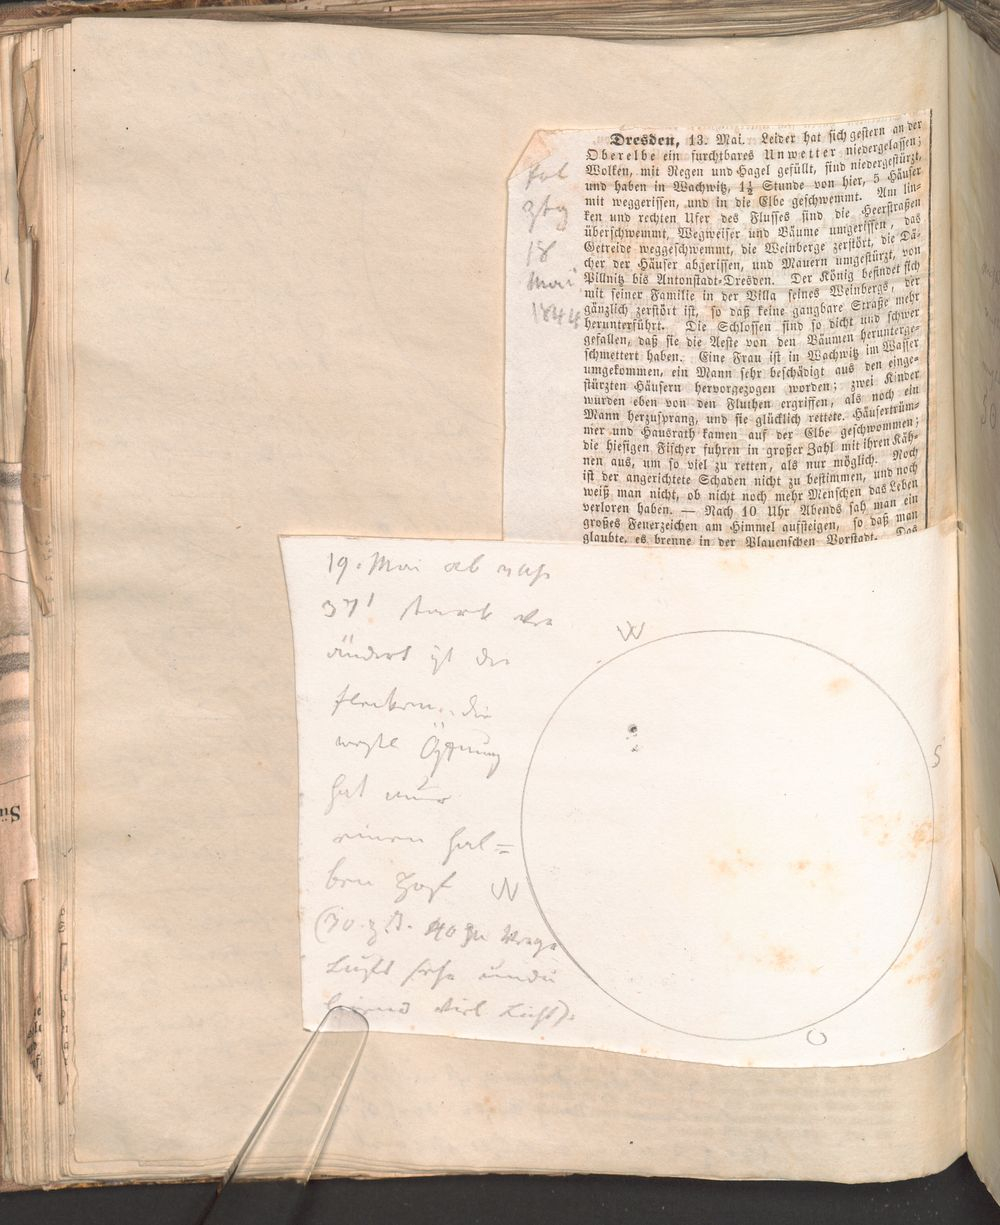 Dresden, 13. Mai. Leider hat sich gestern an der
Oberelbe ein furchtbares Unwetter niedergelassen;
Wolken, mit Regen und Hagel gefüllt, sind niedergestürzt,
und haben in Wachwitz, 1½ Stunde von hier, 5 Häuser
mit weggerissen, und in die Elbe geschwemmt. Am lin-
ken und rechten Ufer des Flusses sind die Heerstraßen
überschwemmt, Wegweiser und Bäume umgerissen, das
Getreide weggeschwemmt, die Weinberge zerstört, die Dä-
cher der Häuser abgerissen, und Mauern umgestürzt, von
Pillnitz bis Antonstadt-Dresden. Der König befindet sich
mit seiner Familie in der Villa seines Weinbergs, der
gänzlich zerstört ist, so daß keine gangbare Straße mehr
herunterführt. Die Schlossen sind so dicht und schwer
gefallen, daß sie die Aeste von den Bäumen herunterge-
schmettert haben. Eine Frau ist in Wachwitz im Wasser
umgekommen, ein Mann sehr beschädigt aus den einge-
stürzten Häusern hervorgezogen worden; zwei Kinder
wurden eben von den Fluthen ergriffen, als noch ein
Mann herzusprang, und sie glücklich rettete. Häusertrüm-
mer und Hausrath kamen auf der Elbe geschwommen;
die hiesigen Fischer fuhren in großer Zahl mit ihren Käh-
nen aus, um so viel zu retten, als nur möglich. Noch
ist der angerichtete Schaden nicht zu bestimmen, und noch
weiß man nicht, ob nicht noch mehr Menschen das Leben
verloren haben. — Nach 10 Uhr Abends sah man ein
großes Feuerzeichen am Himmel aufsteigen, so daß man
glaubte, es brenne in der Plauenschen Vorstadt. Das
18
Mai
1844
19. Mai
37' stark ver
ändert ist die
flecken, die
Öffnung
hat nur
einen hal=
ben Hof W
viel Licht).
W
S
O